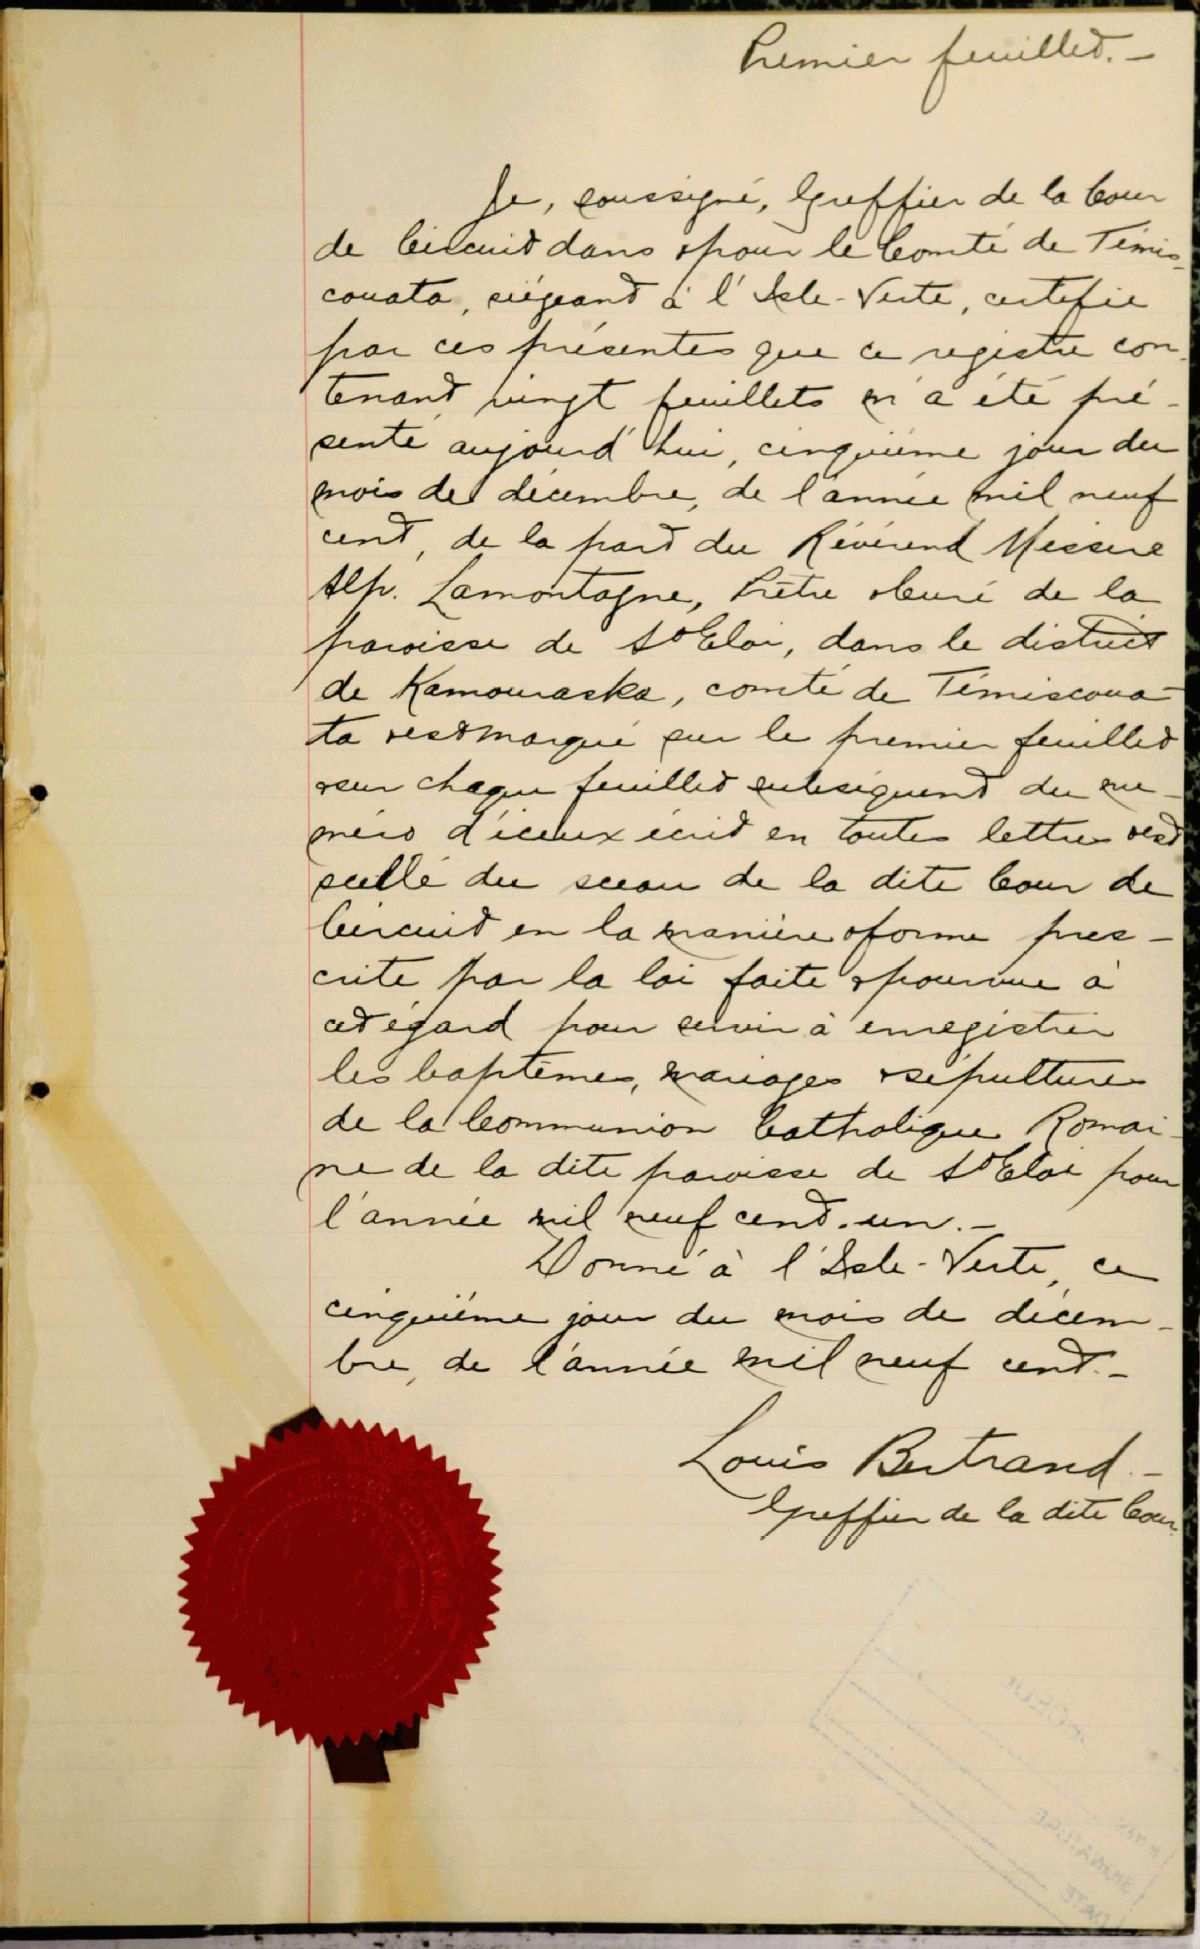 Premier feuillet. -
Je, soussigné, Greffier de la Cour
de Circuit dans & pour le Comté de Témis-
couata, siégeant à l'Isle-Verte, certifie
par ces présentes que ce registre con-
tenant vingt feuillets m'a été pré-
senté aujourd'hui, cinquième jour du
mois de décembre, de l'année mil neuf
cent, de la part du Révérend Messire
Alp. Lamontagne, Prêtre & Curé de la
paroisse de St Eloi, dans le district
de Kamouraska, comté de Témiscoua-
ta & est marqué sur le premier feuillet
& sur chaque feuillet subséquent du nu-
méro d'iceux écrit en toutes lettres & est
scellé du sceau de la dite Cour de
Circuit en la manière & forme pres-
crite par la loi faite & pourvue à
cet égard pour servir à enregistrer
les baptêmes, mariages & sépultures
de la Communion Catholique Romai-
ne de la dite paroisse de St Eloi pour
l'année mil neuf cent-un. -
Donné à l'Isle-Verte, ce
cinquième jour du mois de décem-
bre, de l'année mil neuf cent. -
Louis Bertrand. -
Greffier de la dite Cour.
SIGNATURE
DATE